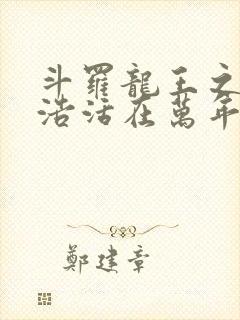 斗羅龍王之
浩活在萬年
鄭建章